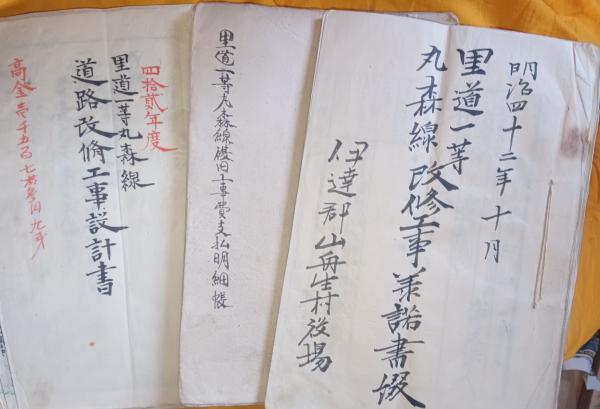 明治四十二年十月
里道一等
丸森線改修工事承諾書綴
伊達郡山舟生村役場
里道一等丸森線復旧工事費支払明細帳
四拾貳年度
里道一等丸森線
道路改修工事設計書
高金壱千五百七拾